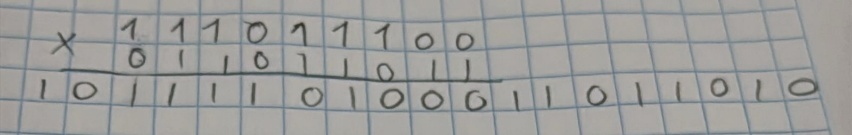 × 1 1 1 0 1 1 1 0 0
0 1 1 0 1 1 0 1 1
1 0 1 1 1 1 0 1 0 0 0 1 1 0 1 1 0 1 0